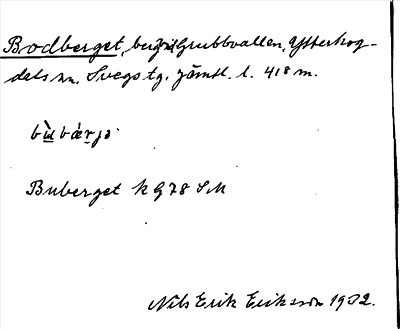 Bodberget, berg vid Grubbvallen, Ytterhog-
dals sn. Svegs tg. Jämtl. l. 418 m.
bu̲bær̲jə
Buberget k G 78 SM
Nils Erik Eriksson 1932.